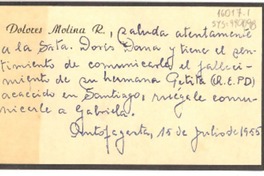 16017.1
Dolores Molina R., saluda atentamente
a la Srta. Doris Dana y tiene el sen-
timiento de comunicarle el falleci-
miento de su hermana Getita (R.E.P.D)
acaecido en Santiago, ruégale comu-
nicarle a Gabriela.
Antofagasta, 15 de Julio de 1955